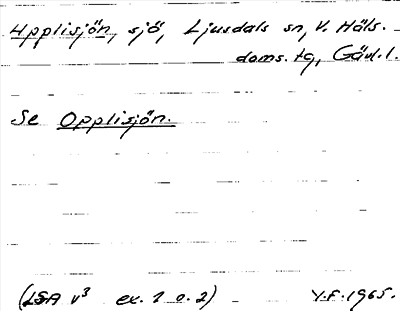 Upplisjön, sjö, Ljusdals sn, V. Häls.
doms. tg, Gävl. l.
Se Opplisjön.
(LSA v³ ex. 1 o. 2) Y.F. 1965.